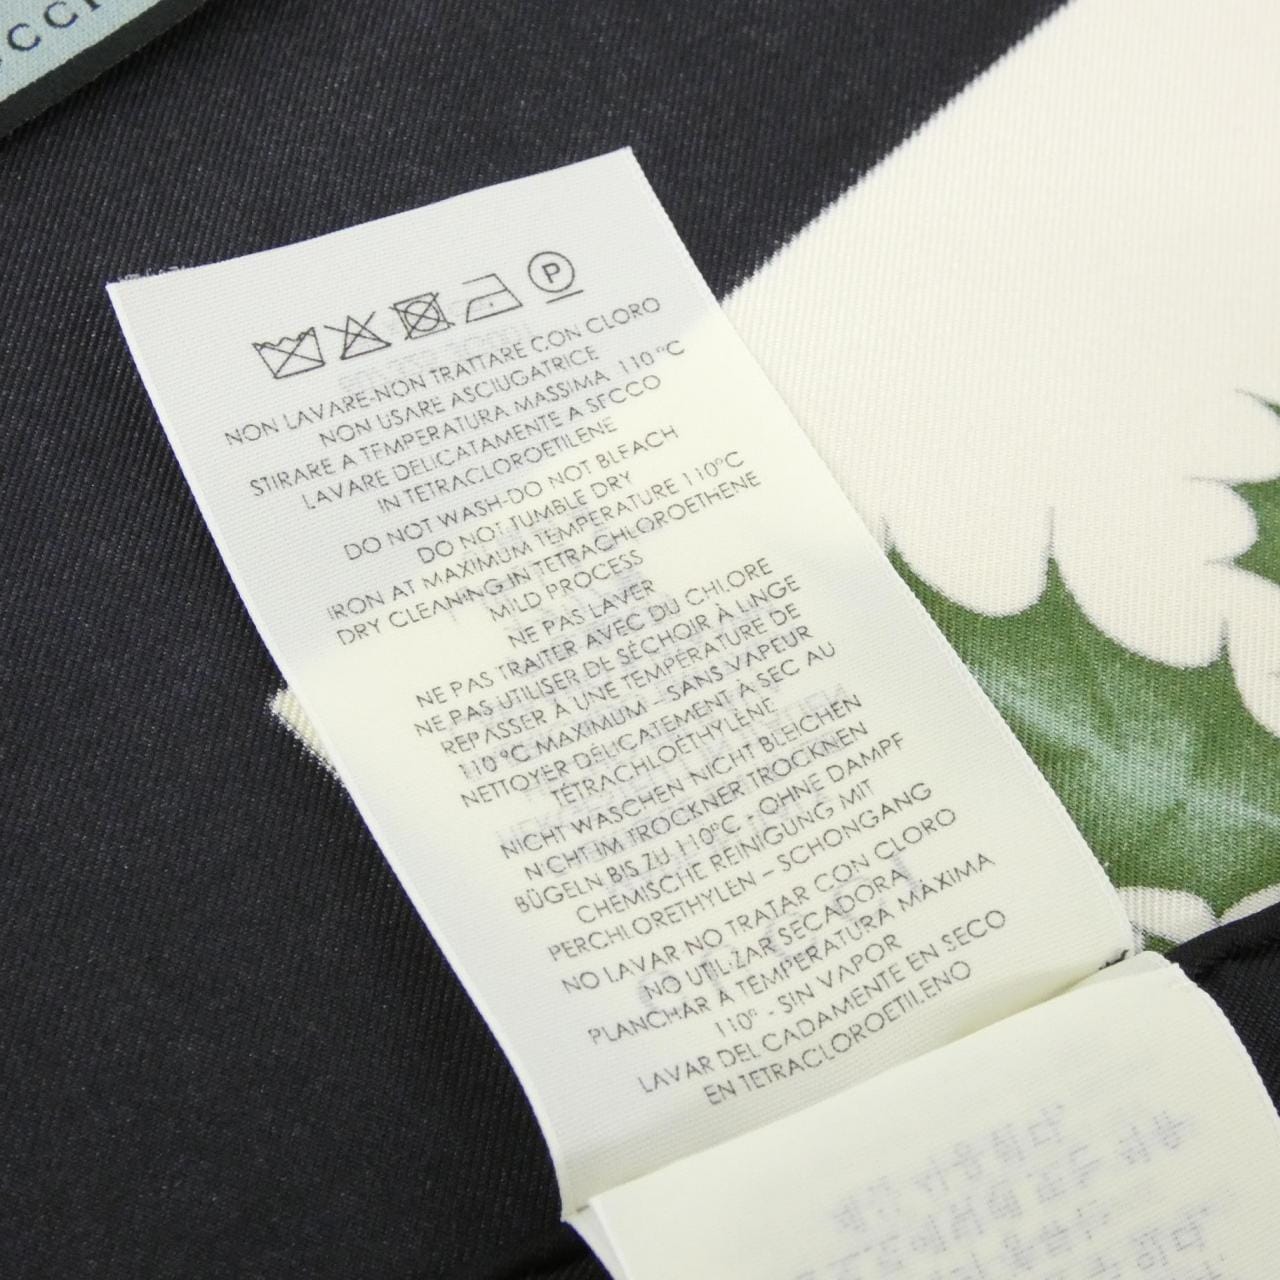 P
NON LAVARE-NON TRATTARE CON CLORO
NON USARE ASCIUGATRICE
STIRARE A TEMPERATURA MASSIMA 110°C
LAVARE DELICATAMENTE A SECCO
IN TETRACLOROETILENE
DO NOT WASH-DO NOT BLEACH
DO NOT TUMBLE DRY
IRON AT MAXIMUM TEMPERATURE 110°C
DRY CLEANING IN TETRACHLOROETHENE
MILD PROCESS
NE PAS LAVER
NE PAS TRAITER AVEC DU CHLORE
NE PAS UTILISER DE SÉCHOIR À LINGE
REPASSER À UNE TEMPÉRATURE DE
110°C MAXIMUM - SANS VAPEUR
NETTOYER DÉLICATEMENT A SEC AU
TÉTRACHLOÉTHYLÈNE
NICHT WASCHEN NICHT BLEICHEN
NICHT IM TROCKNER TROCKNEN
BÜGELN BIS ZU 110°C - OHNE DAMPF
CHEMISCHE REINIGUNG MIT
PERCHLORETHYLEN - SCHONGANG
NO LAVAR-NO TRATAR CON CLORO
NO UTILIZAR SECADORA
PLANCHAR A TEMPERATURA MAXIMA
110° - SIN VAPOR
LAVAR DELICADAMENTE EN SECO
EN TETRACLOROETILENO